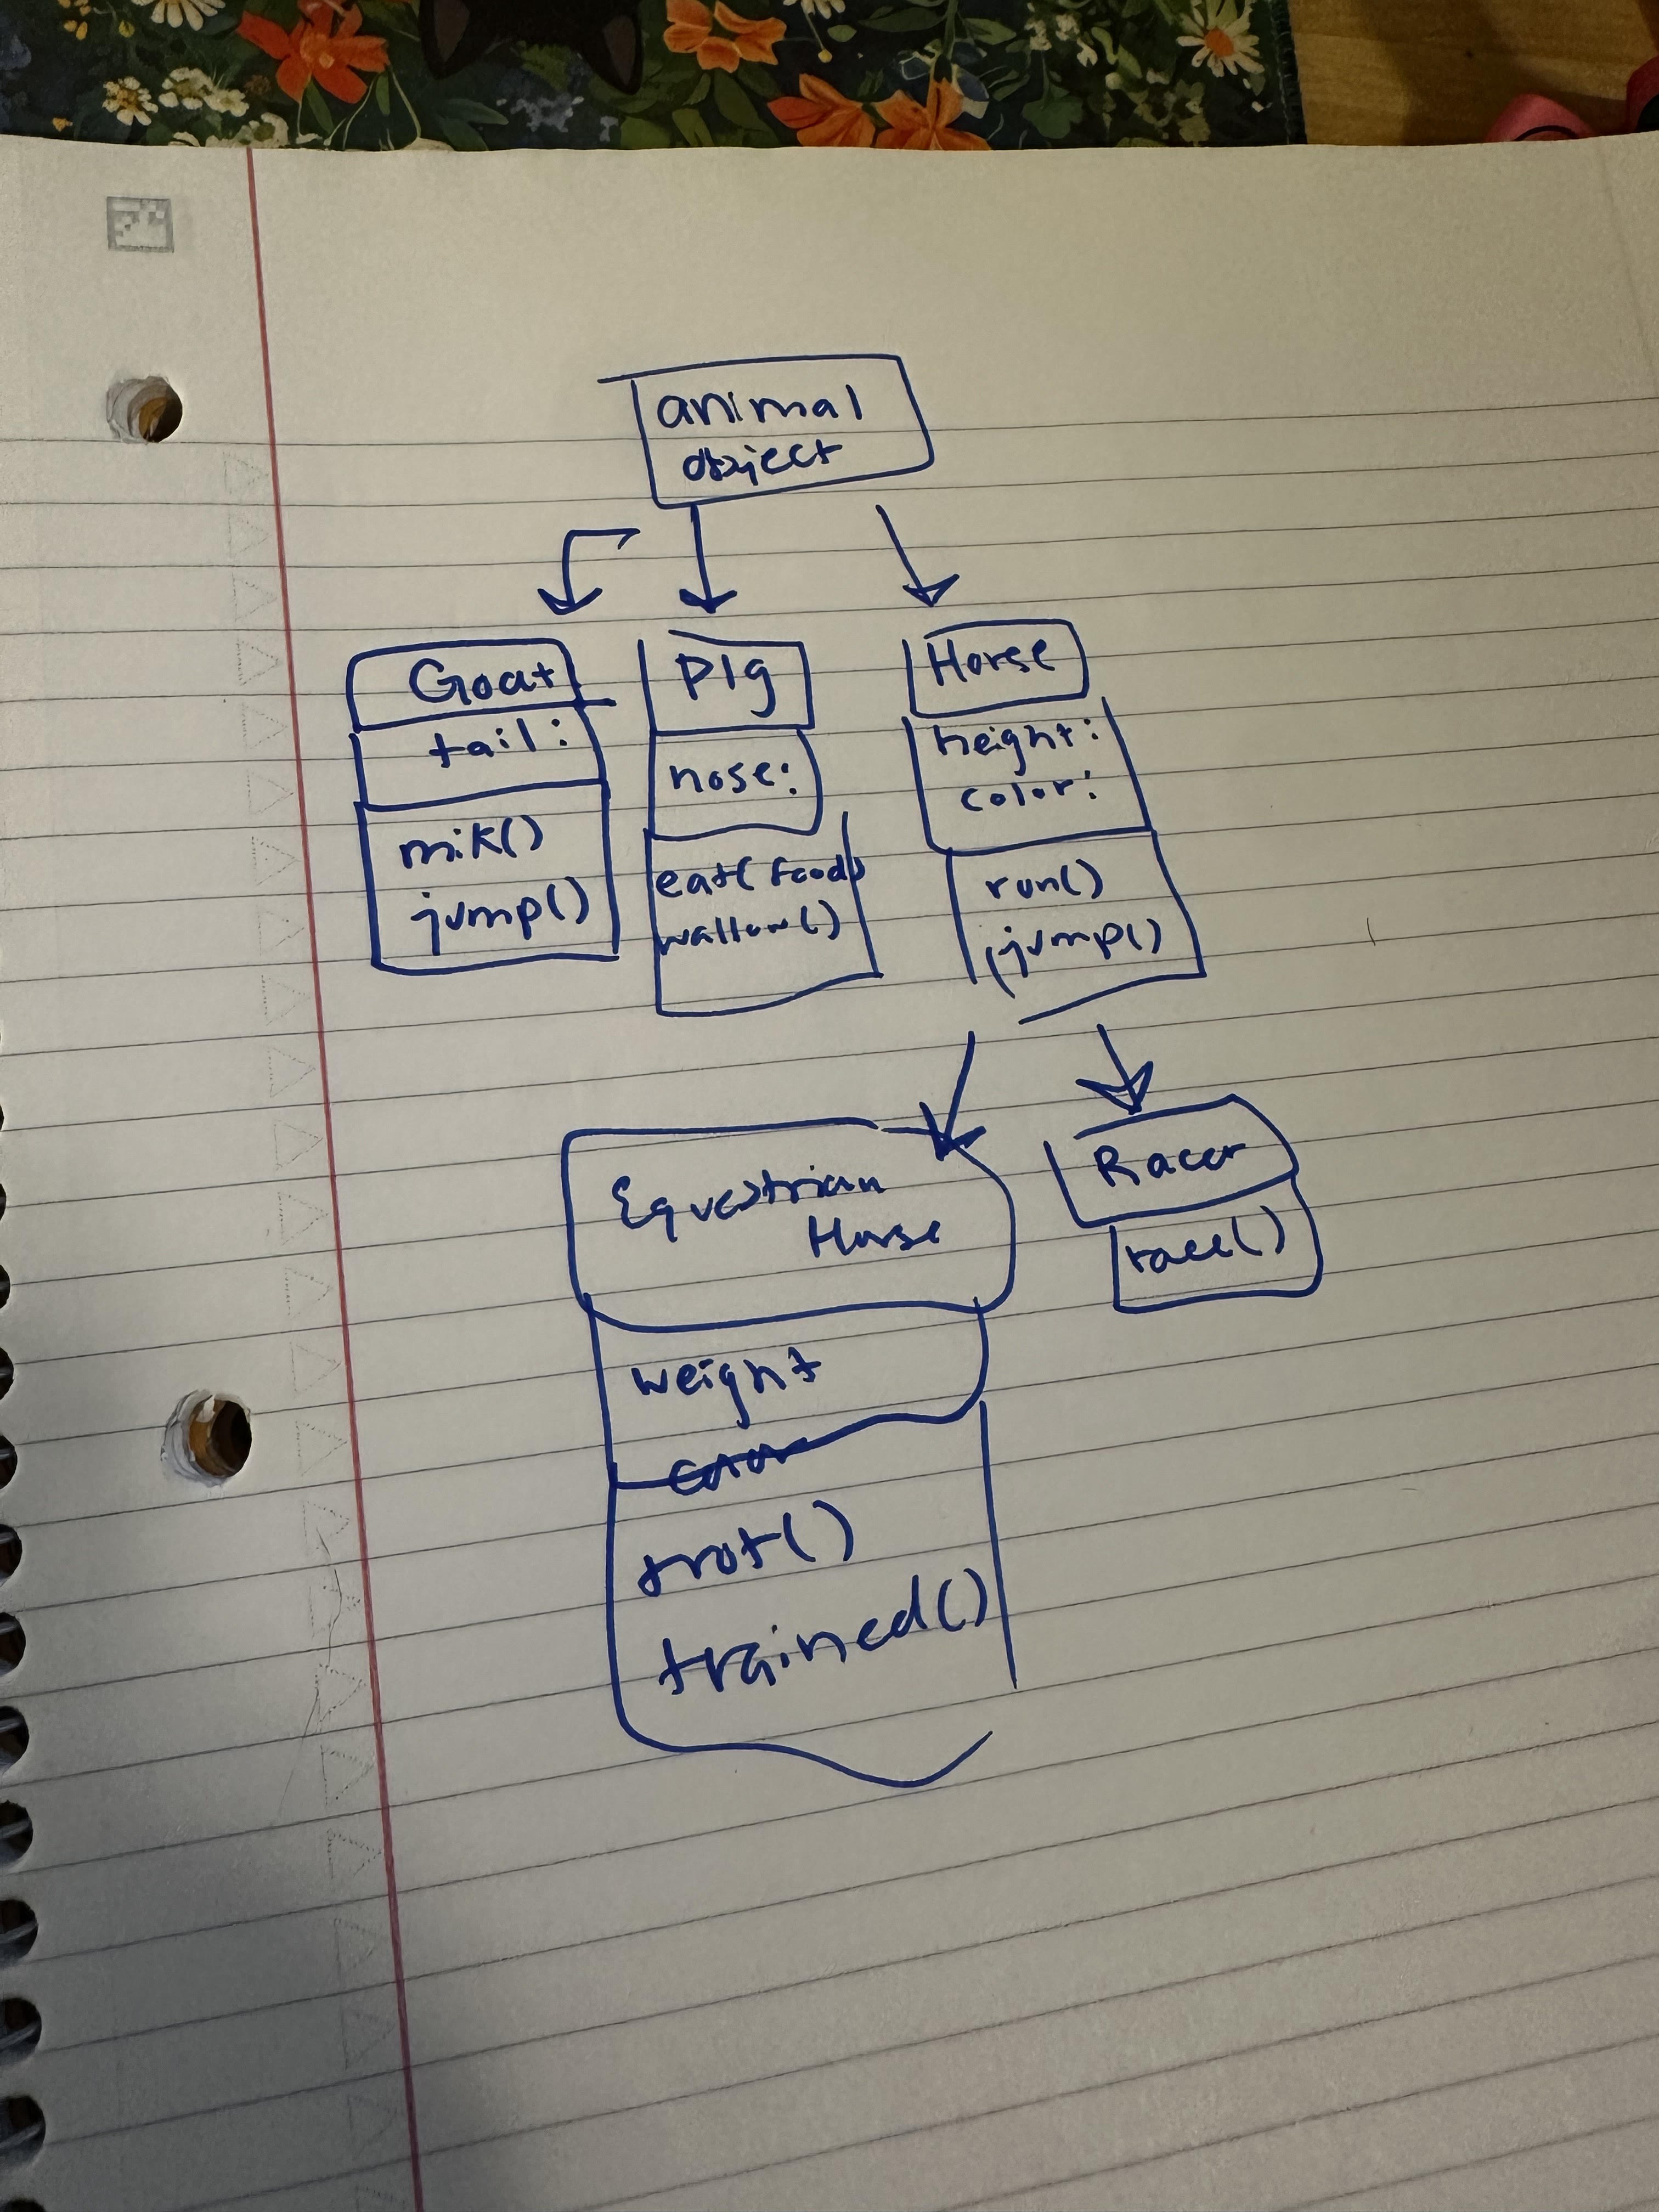 animal
object
Goat
tail:
mik()
jump()
Pig
nose:
eat(food)
wallow()
Horse
height:
color:
run()
jump()
Equestrian
Horse
weight
trot()
trained()
Racer
race()